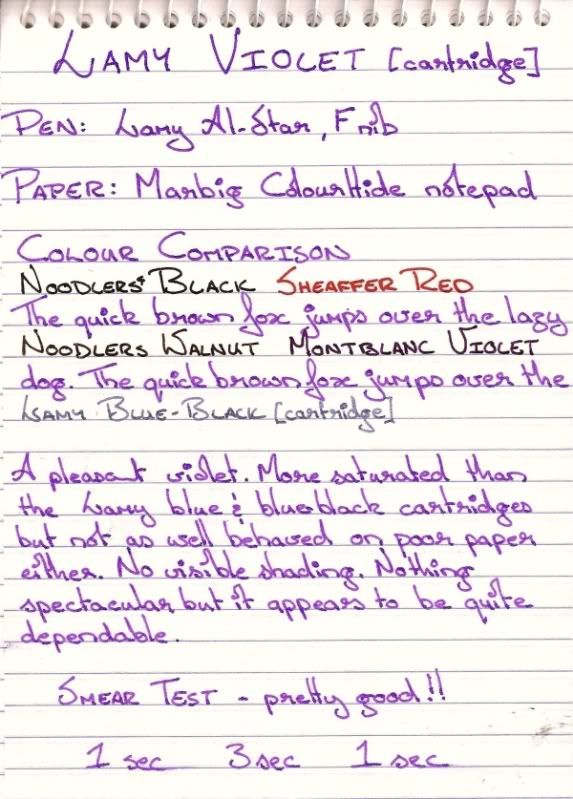 LAMY VIOLET [cartridge]
PEN: Lamy Al-Star, F nib
PAPER: Marbig ColourHide notepad
COLOUR COMPARISON
NOODLERS' BLACK SHEAFFER RED
The quick brown fox jumps over the lazy
NOODLERS WALNUT MONTBLANC VIOLET
dog. The quick brown fox jumps over the
LAMY BLUE-BLACK [cartridge]
A pleasant violet. More saturated than
the Lamy blue & blueblack cartridges
but not as well behaved on poor paper
either. No visible shading. Nothing
spectacular but it appears to be quite
dependable.
SMEAR TEST - pretty good!!
1 sec 3 sec 1 sec